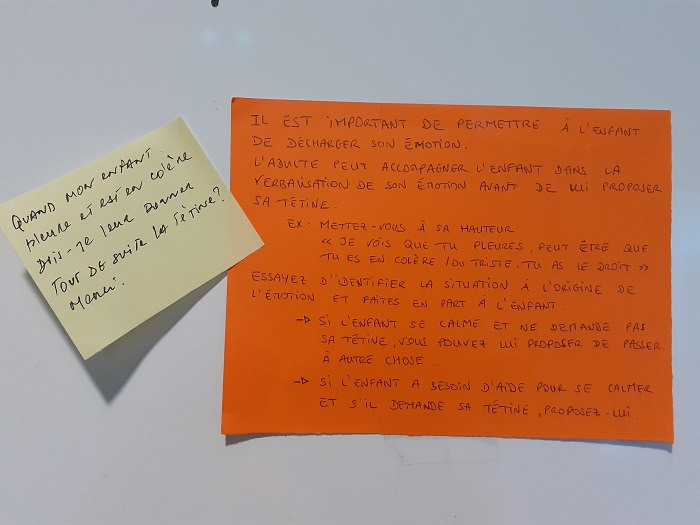 QUAND MON ENFANT
pleure et est en colère
Dois-je leur Donner
Tout DE suite la TéTine?
Merci.
IL EST IMPORTANT DE PERMETTRE À L'ENFANT
DE DÉCHARGER SON ÉMOTION.
L'ADULTE PEUT ACCOMPAGNER L'ENFANT DANS LA
VERBALISATION DE SON ÉMOTION AVANT DE LUI PROPOSER
SA TÉTINE.
EX: METTEZ-VOUS À SA HAUTEUR
« JE VOIS QUE TU PLEURES, PEUT ÊTRE QUE
TU ES EN COLÈRE /OU TRISTE. TU AS LE DROIT »
ESSAYEZ D'IDENTIFIER LA SITUATION À L'ORIGINE DE
L'ÉMOTION ET FAITES EN PART À L'ENFANT.
→ SI L'ENFANT SE CALME ET NE DEMANDE PAS
SA TÉTINE, VOUS POUVEZ LUI PROPOSER DE PASSER
À AUTRE CHOSE.
→ SI L'ENFANT A BESOIN D'AIDE POUR SE CALMER
ET S'IL DEMANDE SA TÉTINE, PROPOSEZ-LUI.